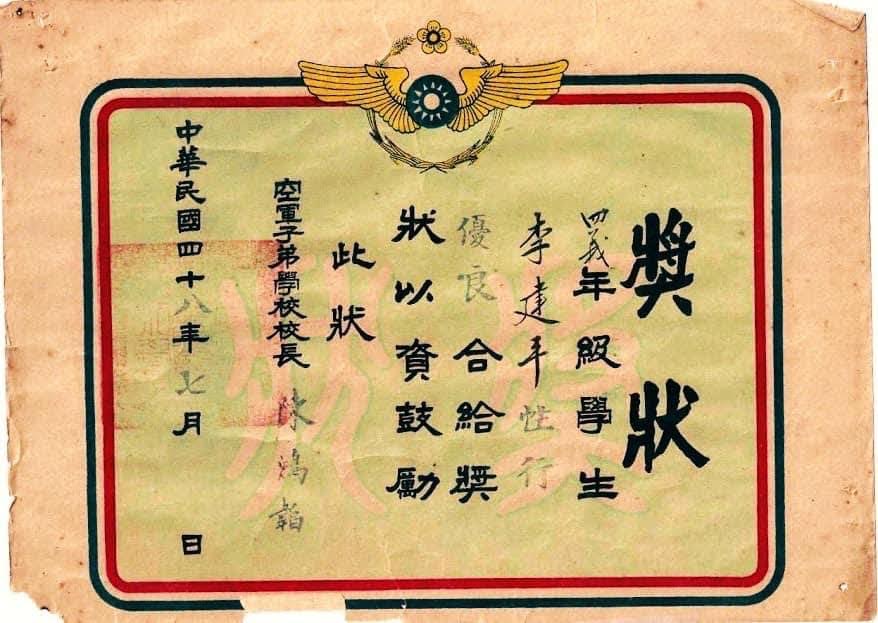 獎狀
四義年級學生
李建平性行
優良合給獎
狀以資鼓勵
此狀
空軍子弟學校校長陳鴻韜
中華民國四十八年七月 日
獎狀